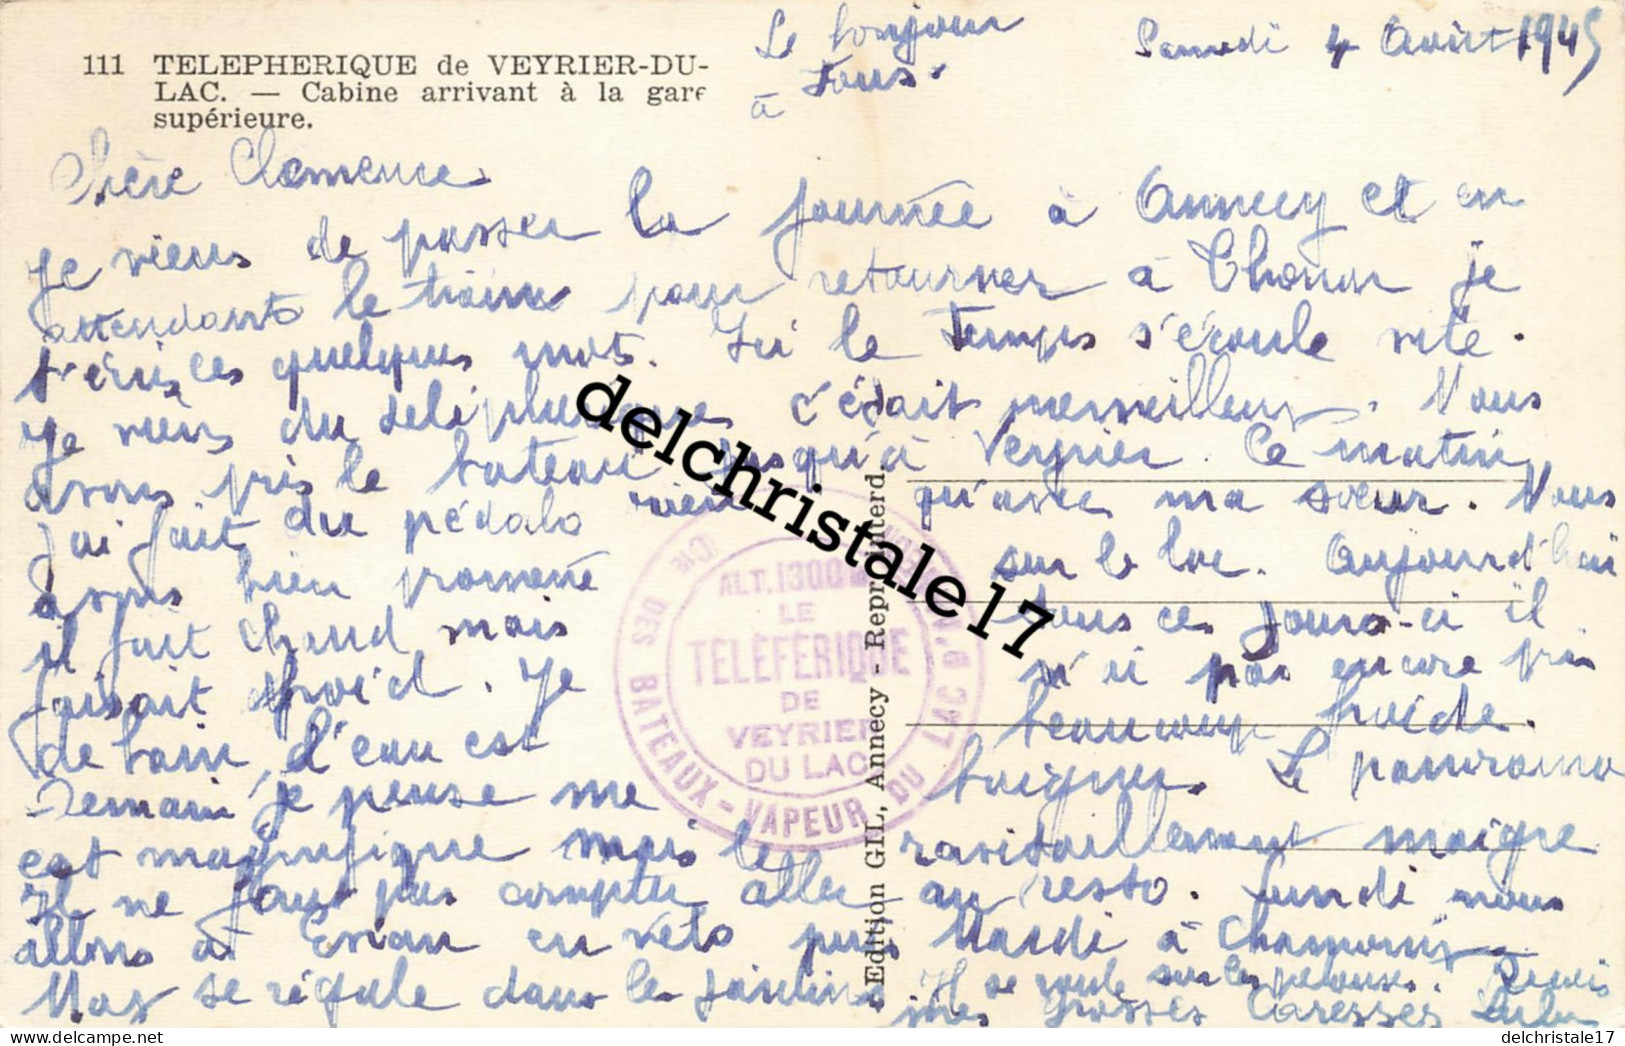 111 TELEPHERIQUE de VEYRIER-DU-
LAC. — Cabine arrivant à la gare
supérieure.
Le bonjour
à Tous.
Samedi 4 Août 1945
Chère Clémence
Je viens de passer la journée à Annecy et en
attendant le train pour retourner à Thonon je
t'écris ces quelques mots. Ici le Temps s'écoule vite.
Je viens du téléphérique c'était merveilleux. Nous
avons pris le bateau jusqu'à Veyrier. Ce matin
j'ai fait du pédalo rien qu'avec ma sœur. Nous
bien promené sur le lac. Aujourd'hui
il fait chaud mais tous ces jours-ci il
faisait froid. Je n'ai pas encore pris
de bain, l'eau est beaucoup froide.
Demain je pense me baigner. Le panorama
est magnifique mais le ravitaillement maigre
Il ne faut pas compter aller au resto. Lundi nous
allons à Evian en vélo puis Mardi à Chamonix
se régale dans les jardins Il se roule sur les pelouses. Reçois
mes grosses Caresses Lulu
Cie DES BATEAUX-VAPEUR DU LAC D'
ALT. 1300
LE
TÉLÉFÉRIQUE
DE
VEYRIER
DU LAC
Edition GIL, Annecy - Repr. interd.
delchristale17
delcampe.net
delchristale17